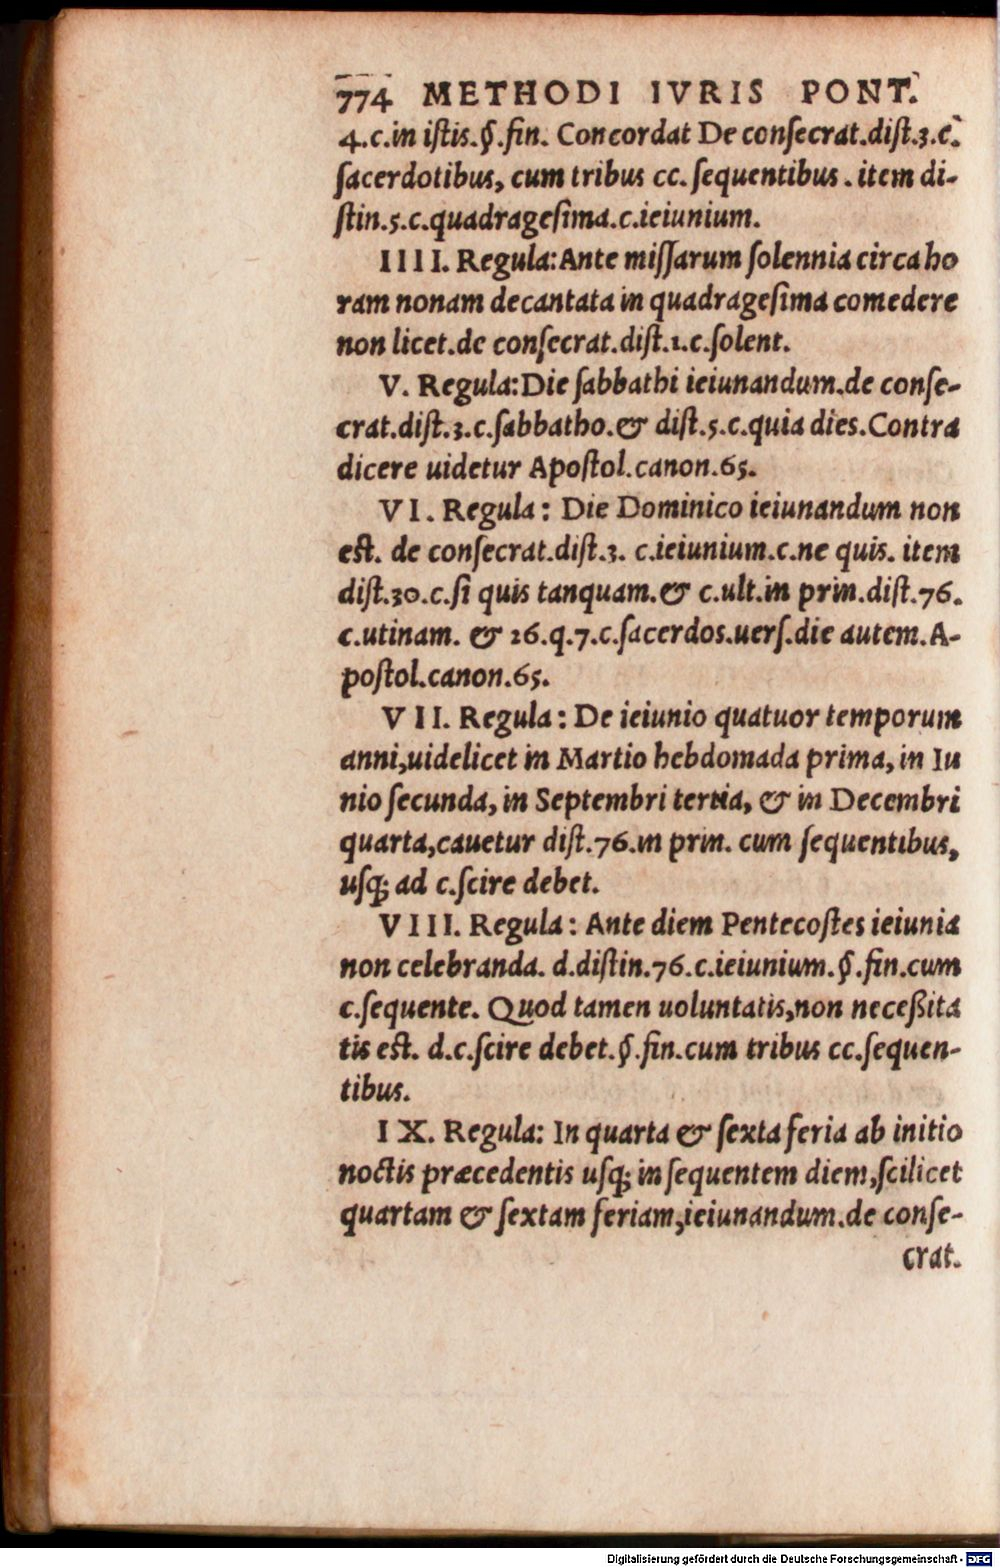 774 METHODI IVRIS PONT.
4.c.in iſtis.§.fin. Concordat De conſecrat.diſt.3.c.
ſacerdotibus, cum tribus cc. ſequentibus . item di-
ſtin.5.c.quadrageſima.c.ieiunium.
IIII. Regula: Ante miſſarum ſolennia circa ho
ram nonam decantata in quadrageſima comedere
non licet.de conſecrat.diſt.1.c.ſolent.
V. Regula: Die ſabbathi ieiunandum.de conſe-
crat.diſt.3.c.ſabbatho.& diſt.5.c.quia dies.Contra
dicere uidetur Apoſtol.canon.65.
VI. Regula: Die Dominico ieiunandum non
eſt. de conſecrat.diſt.3. c.ieiunium.c.ne quis. item
diſt.30.c.ſi quis tanquam.& c.ult.in prin.diſt.76.
c.utinam. & 26.q.7.c.ſacerdos.uerſ.die autem. A-
poſtol.canon.65.
VII. Regula: De ieiunio quatuor temporum
anni,uidelicet in Martio hebdomada prima, in Iu
nio ſecunda, in Septembri tertia, & in Decembri
quarta,cauetur diſt.76.in prin. cum ſequentibus,
uſq; ad c.ſcire debet.
VIII. Regula: Ante diem Pentecoſtes ieiunia
non celebranda. d.diſtin.76.c.ieiunium.§.fin.cum
c.ſequente. Quod tamen uoluntatis,non neceßita
tis eſt. d.c.ſcire debet.§.fin.cum tribus cc.ſequen-
tibus.
IX. Regula: In quarta & ſexta feria ab initio
noctis præcedentis uſq; in ſequentem diem,ſcilicet
quartam & ſextam feriam,ieiunandum.de conſe-
crat.
Digitalisierung gefördert durch die Deutsche Forschungsgemeinschaft - DFG